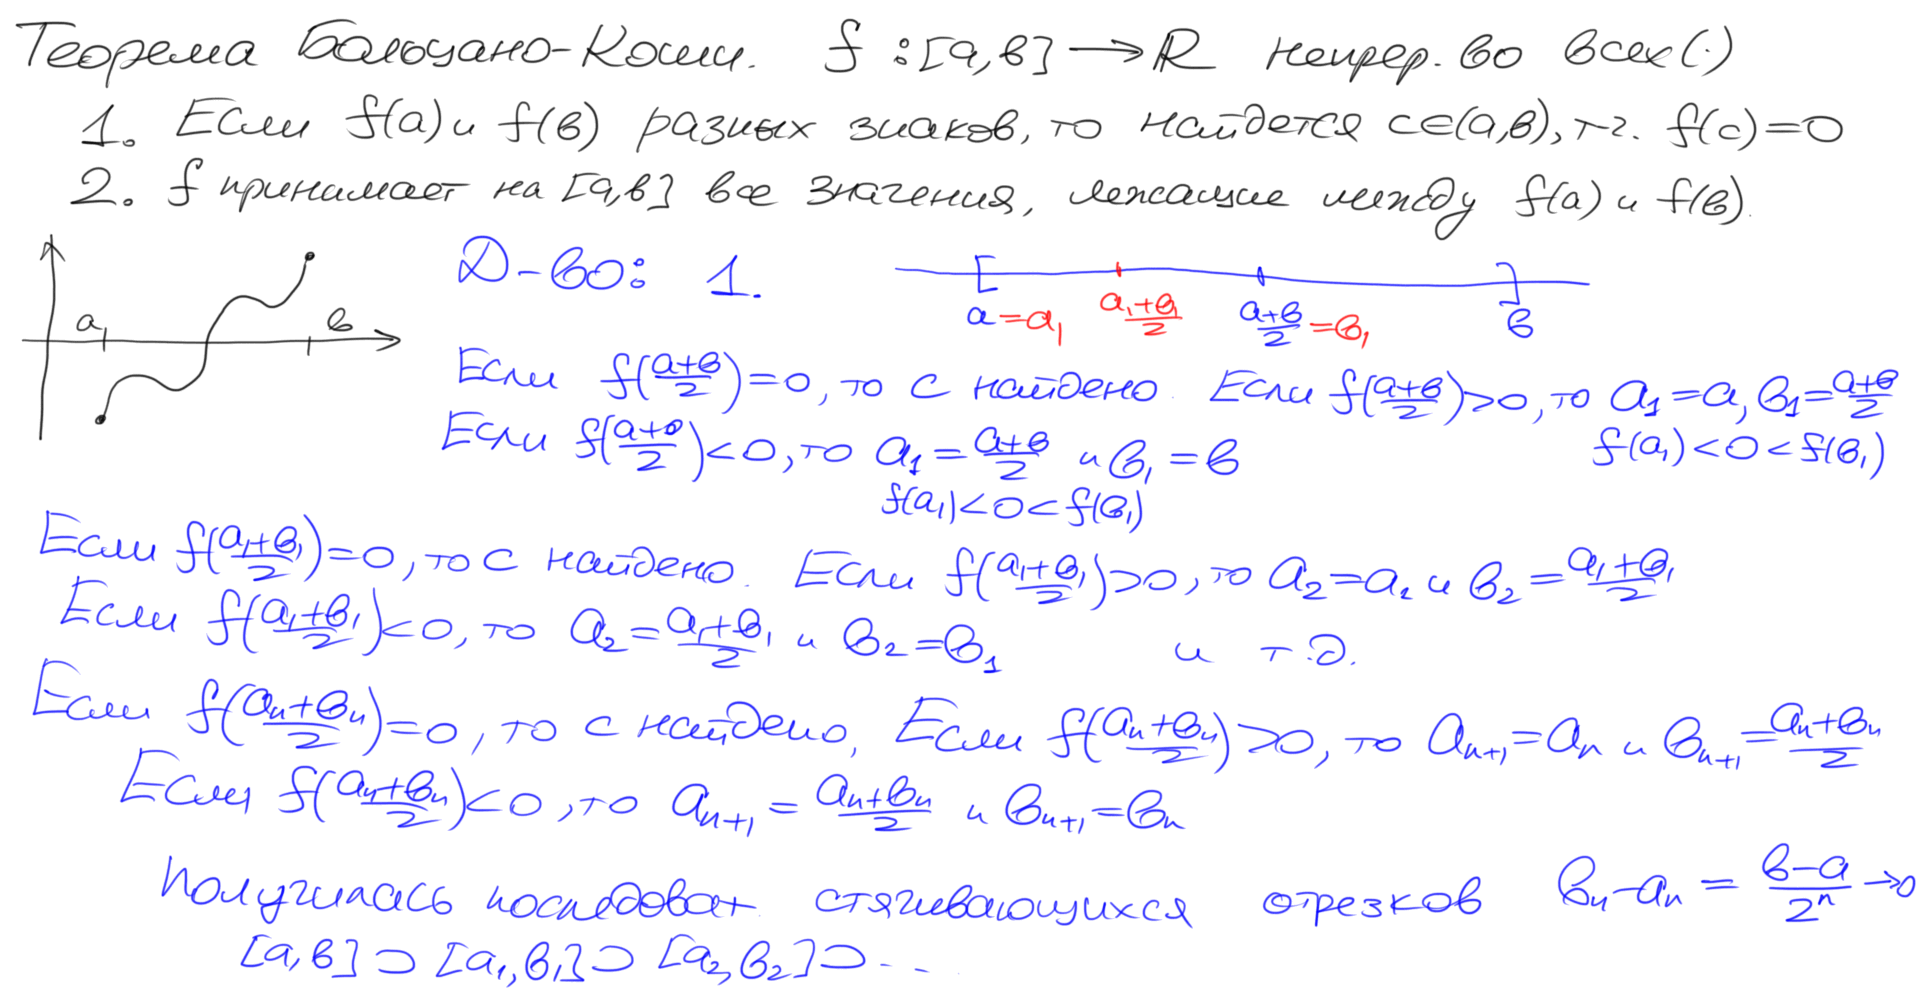 Теорема Больцано-Коши. f:[a,в]→R непрер. во всех(·)
1. Если f(a) и f(в) разных знаков, то найдется c∈(a,в), т-ч. f(c)=0
2. f принимает на [a,в] все значения, лежащие между f(a) и f(в).
a в
Д-во: 1.
a=a₁ (a₁+в₁)/2 (a+в)/2=в₁ в
Если f((a+в)/2)=0, то c найдено. Если f((a+в)/2)>0, то a₁=a, в₁=(a+в)/2
f(a₁)<0<f(в₁)
Если f((a+в)/2)<0, то a₁=(a+в)/2 и в₁=в
f(a₁)<0<f(в₁)
Если f((a₁+в₁)/2)=0, то c найдено. Если f((a₁+в₁)/2)>0, то a₂=a₁ и в₂=(a₁+в₁)/2
Если f((a₁+в₁)/2)<0, то a₂=(a₁+в₁)/2 и в₂=в₁ и т.д.
Если f((aₙ+вₙ)/2)=0, то c найдено, Если f((aₙ+вₙ)/2)>0, то aₙ₊₁=aₙ и вₙ₊₁=(aₙ+вₙ)/2
Если f((aₙ+вₙ)/2)<0, то aₙ₊₁=(aₙ+вₙ)/2 и вₙ₊₁=вₙ
Получилась последоват. стягивающихся отрезков вₙ-aₙ=(в-a)/2ⁿ→0
[a,в]⊃[a₁,в₁]⊃[a₂,в₂]⊃...